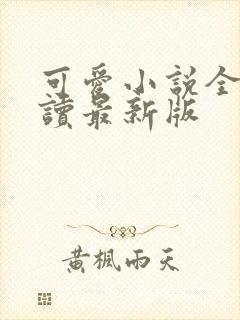 可愛小說全
讀最新版
黃楓雨天